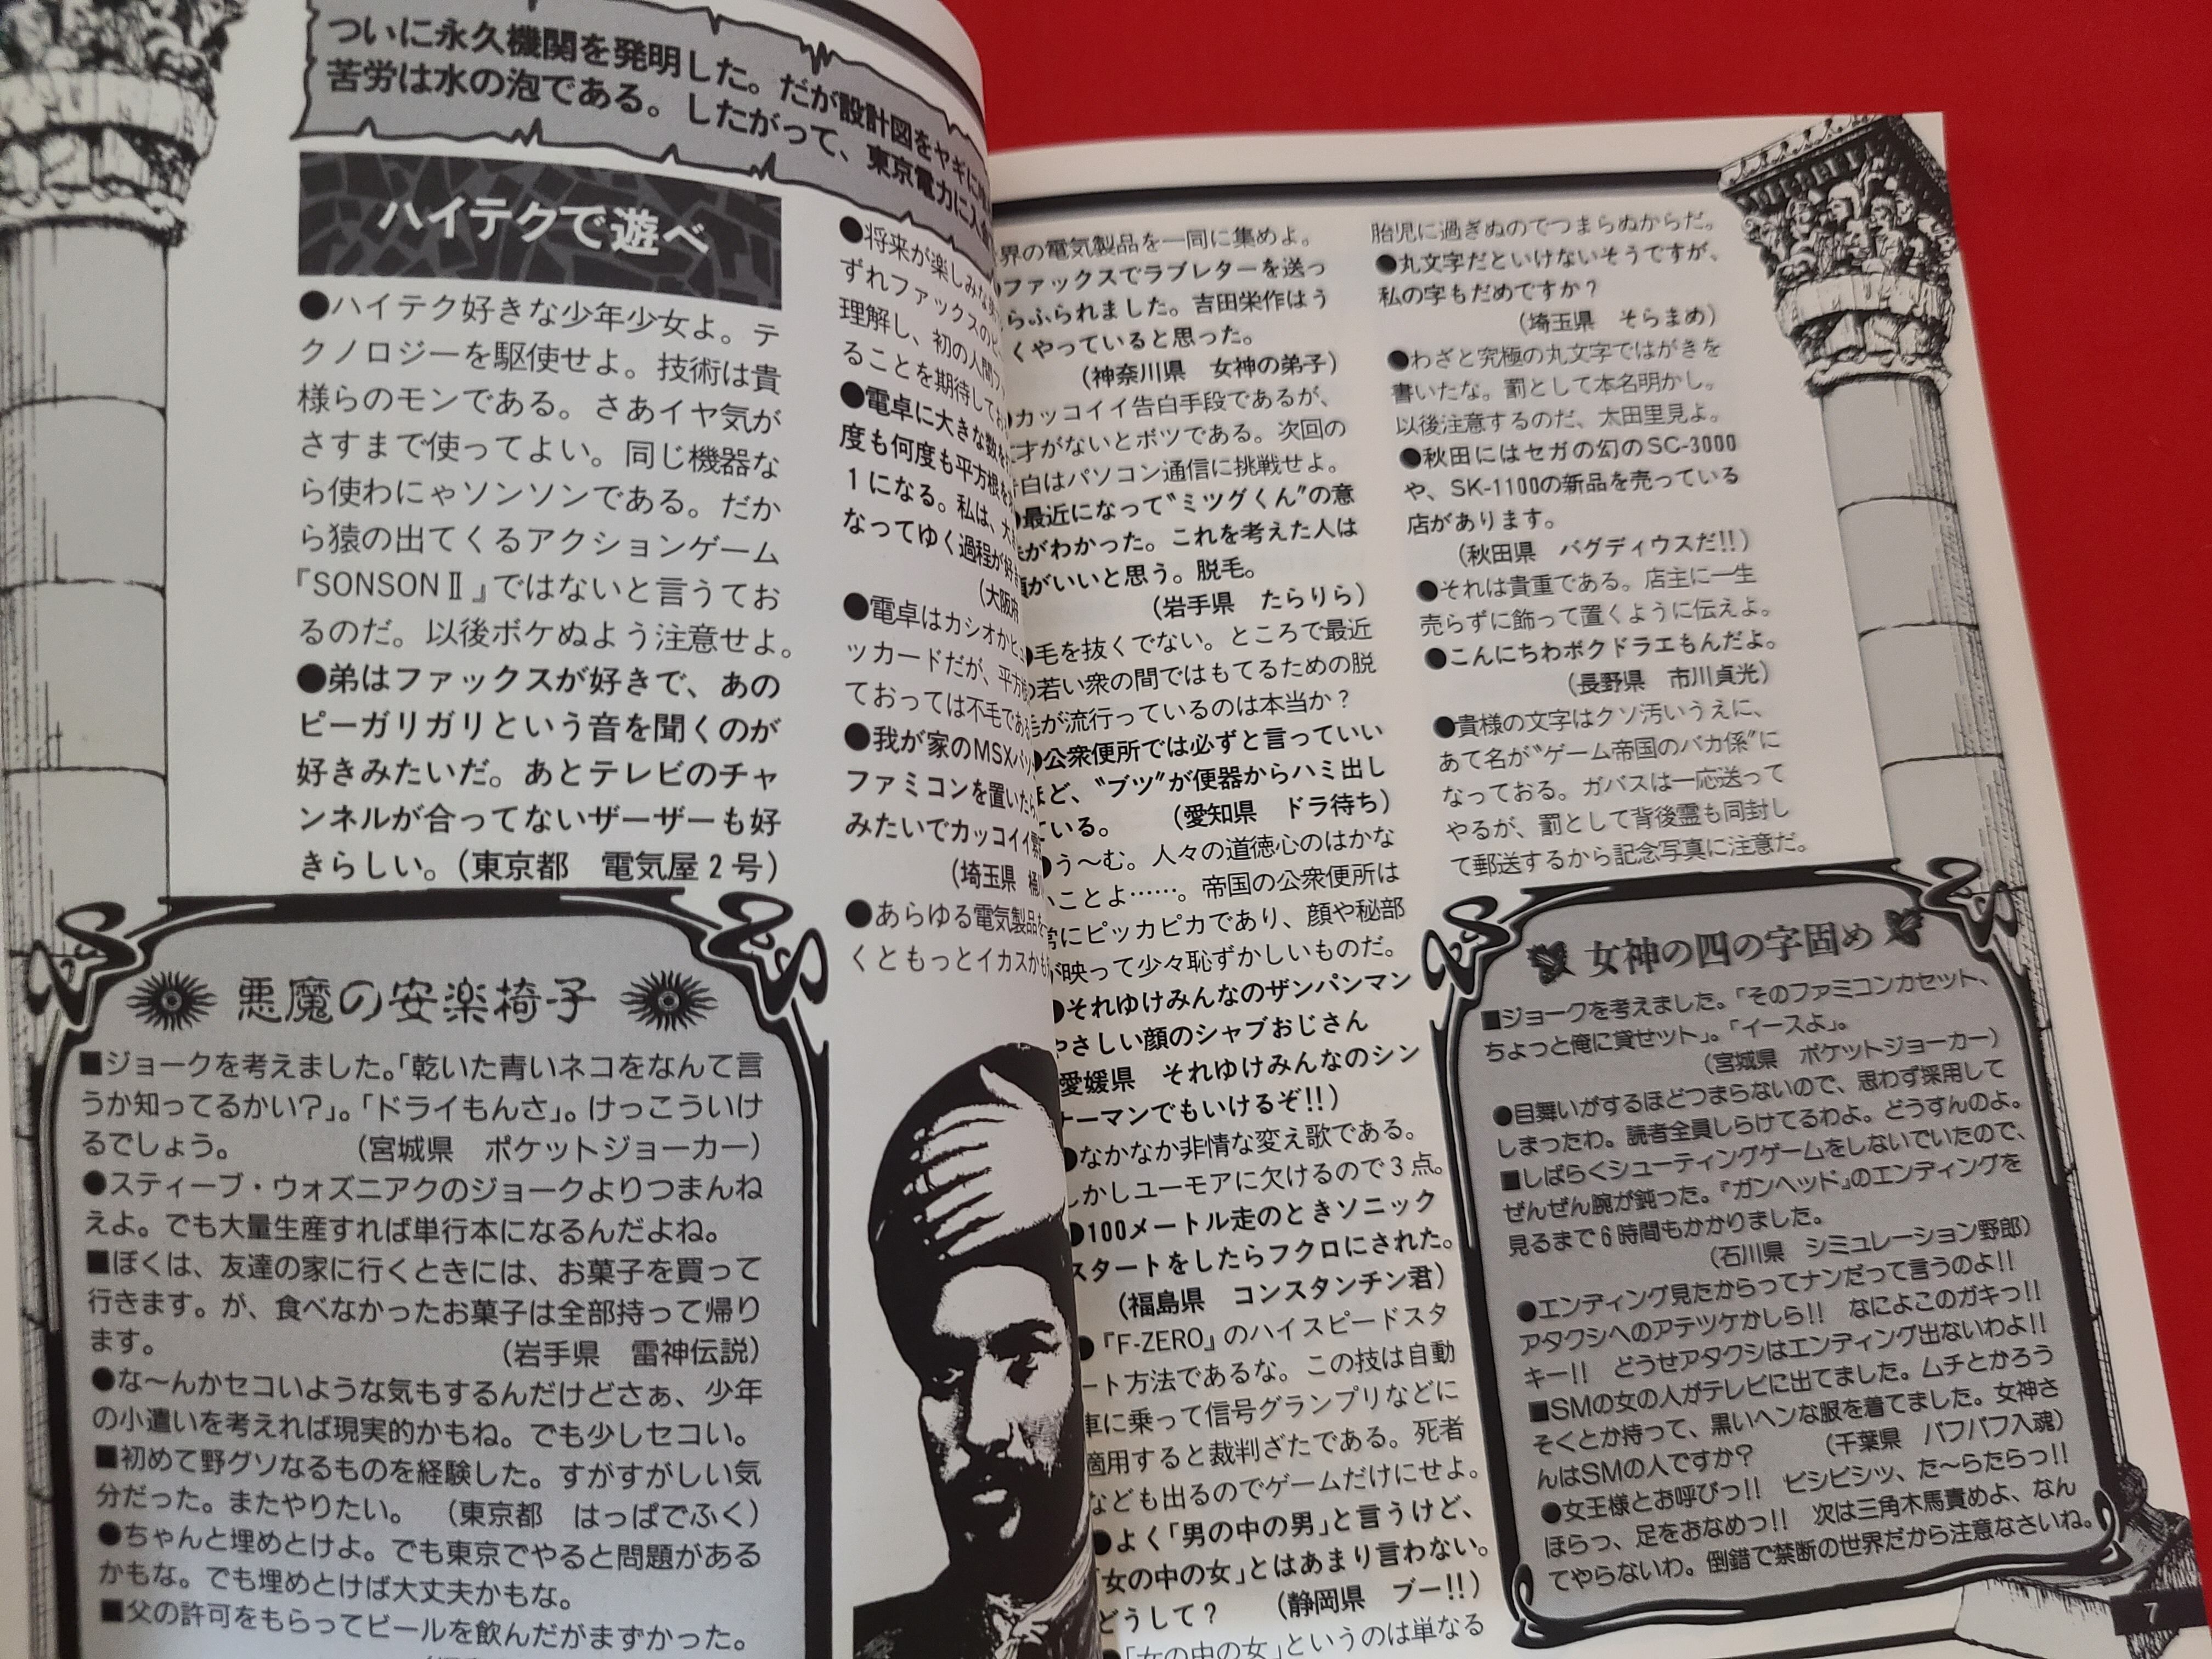 ついに永久機関を発明した。だが設計図をヤギに
苦労は水の泡である。したがって、東京電力に入
ハイテクで遊べ
●ハイテク好きな少年少女よ。テ
クノロジーを駆使せよ。技術は貴
様らのモンである。さあイヤ気が
さすまで使ってよい。同じ機器な
ら使わにゃソンソンである。だか
ら猿の出てくるアクションゲーム
『SONSONⅡ』ではないと言うてお
るのだ。以後ボケぬよう注意せよ。
●弟はファックスが好きで、あの
ピーガリガリという音を聞くのが
好きみたいだ。あとテレビのチャ
ンネルが合ってないザーザーも好
きらしい。（東京都　電気屋2号）
●将来が楽しみな
ずれファックスの
理解し、初の人間フ
ることを期待して
●電卓に大きな数を
度も何度も平方根を
1になる。私は、大
なってゆく過程が好
（大阪府
●電卓はカシオかヒュ
ッカードだが、平方
ておっては不毛であ
●我が家のMSXパソ
ファミコンを置いたら
みたいでカッコイイ
（埼玉県　桶
●あらゆる電気製品を
くともっとイカスかも
悪魔の安楽椅子
■ジョークを考えました。「乾いた青いネコをなんて言
うか知ってるかい？」。「ドライもんさ」。けっこういけ
るでしょう。　（宮城県　ポケットジョーカー）
●スティーブ・ウォズニアクのジョークよりつまんね
えよ。でも大量生産すれば単行本になるんだよね。
■ぼくは、友達の家に行くときには、お菓子を買って
行きます。が、食べなかったお菓子は全部持って帰り
ます。　（岩手県　雷神伝説）
●な〜んかセコいような気もするんだけどさぁ、少年
の小遣いを考えれば現実的かもね。でも少しセコい。
■初めて野グソなるものを経験した。すがすがしい気
分だった。またやりたい。　（東京都　はっぱでふく）
●ちゃんと埋めとけよ。でも東京でやると問題がある
かもな。でも埋めとけば大丈夫かもな。
■父の許可をもらってビールを飲んだがまずかった。
界の電気製品を一同に集めよ。
ファックスでラブレターを送っ
らふられました。吉田栄作はう
くやっていると思った。
（神奈川県　女神の弟子）
●カッコイイ告白手段であるが、
才がないとボツである。次回の
白はパソコン通信に挑戦せよ。
●最近になって〝ミツグくん〟の意
がわかった。これを考えた人は
がいいと思う。脱毛。
（岩手県　たらりら）
●毛を抜くでない。ところで最近
の若い衆の間ではもてるための脱
毛が流行っているのは本当か？
●公衆便所では必ずと言っていい
ほど、〝ブツ〟が便器からハミ出し
ている。　（愛知県　ドラ待ち）
●う〜む。人々の道徳心のはかな
いことよ……。帝国の公衆便所は
常にピッカピカであり、顔や秘部
が映って少々恥ずかしいものだ。
●それゆけみんなのザンパンマン
やさしい顔のシャブおじさん
（愛媛県　それゆけみんなのシン
ナーマンでもいけるぞ!!）
●なかなか非情な変え歌である。
しかしユーモアに欠けるので3点。
●100メートル走のときソニック
スタートをしたらフクロにされた。
（福島県　コンスタンチン君）
●『F-ZERO』のハイスピードスタ
ート方法であるな。この技は自動
車に乗って信号グランプリなどに
適用すると裁判ざたである。死者
なども出るのでゲームだけにせよ。
●よく「男の中の男」と言うけど、
「女の中の女」とはあまり言わない。
どうして？　（静岡県　ブー!!）
●「女の中の女」というのは単なる
胎児に過ぎぬのでつまらぬからだ。
●丸文字だといけないそうですが、
私の字もだめですか？
（埼玉県　そらまめ）
●わざと究極の丸文字ではがきを
書いたな。罰として本名明かし。
以後注意するのだ、太田里見よ。
●秋田にはセガの幻のSC-3000
や、SK-1100の新品を売っている
店があります。
（秋田県　バグディウスだ!!）
●それは貴重である。店主に一生
売らずに飾って置くように伝えよ。
●こんにちわボクドラエもんだよ。
（長野県　市川貞光）
●貴様の文字はクソ汚いうえに、
あて名が〝ゲーム帝国のバカ係〟に
なっておる。ガバスは一応送って
やるが、罰として背後霊も同封し
て郵送するから記念写真に注意だ。
女神の四の字固め
■ジョークを考えました。「そのファミコンカセット、
ちょっと俺に貸せット」。「イースよ」。
（宮城県　ポケットジョーカー）
●目舞いがするほどつまらないので、思わず採用して
しまったわ。読者全員しらけてるわよ。どうすんのよ。
■しばらくシューティングゲームをしないでいたので、
ぜんぜん腕が鈍った。『ガンヘッド』のエンディングを
見るまで6時間もかかりました。
（石川県　シミュレーション野郎）
●エンディング見たからってナンだって言うのよ!!
アタクシへのアテツケかしら!!　なによこのガキっ!!
キー!!　どうせアタクシはエンディング出ないわよ!!
■SMの女の人がテレビに出てました。ムチとかろう
そくとか持って、黒いヘンな服を着てました。女神さ
んはSMの人ですか？　（千葉県　パフパフ入魂）
●女王様とお呼びっ!!　ビシビシッ、た〜らたらっ!!
ほらっ、足をおなめっ!!　次は三角木馬責めよ、なん
てやらないわ。倒錯で禁断の世界だから注意なさいね。
7